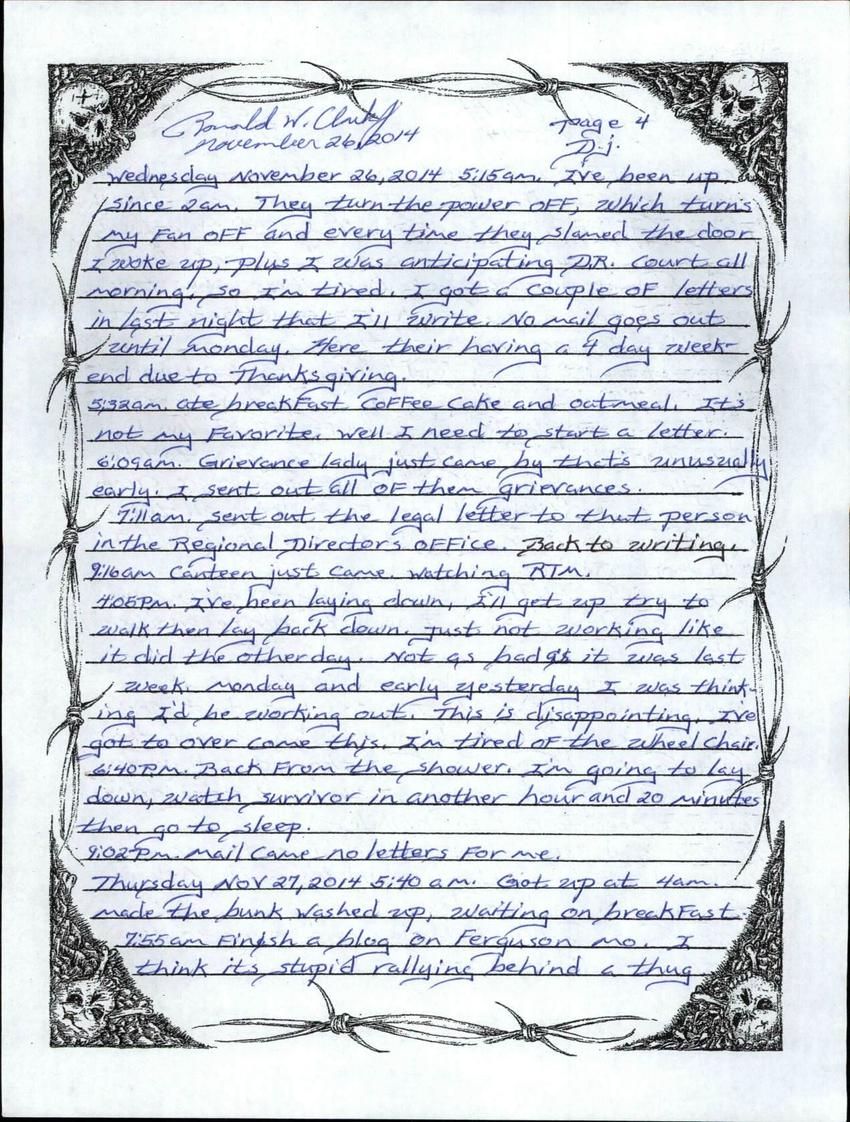 Ronald W. Clark Jr
November 26, 2014
page 4
D.j.
Wednesday November 26, 2014 5:15am. I've been up
since 2am. They turn the power OFF, which turns
my Fan OFF and every time they slamed the door
I woke up, plus I was anticipating D.R. Court all
morning, so I'm tired. I got a couple of letters
in last night that I'll write. No mail goes out
until monday. Here their having a 4 day week-
end due to Thanksgiving.
5:32am. ate breakfast Coffee Cake and oatmeal. It's
not my Favorite. Well I need to start a letter.
6:09am. Grievance lady just came by that's unusually
early. I sent out all of them grievances.
7:11am. sent out the legal letter to that person
in the Regional Director's office. Back to writing.
9:16am Canteen just came. Watching RTM.
4:05pm. I've been laying down, I'll get up try to
walk then lay back down. Just not working like
it did the other day. Not as bad as it was last
week. Monday and early yesterday I was think-
ing I'd be working out. This is disappointing. I've
got to over come this. I'm tired of the wheel chair.
6:40pm. Back From the shower. I'm going to lay
down, watch survivor in another hour and 20 minutes
then go to sleep.
9:02pm. Mail came no letters for me.
Thursday Nov 27, 2014 5:40 am. Got up at 4am.
made the bunk washed up, waiting on breakfast.
7:55am Finish a blog on Ferguson Mo. I
think it's stupid rallying behind a thug